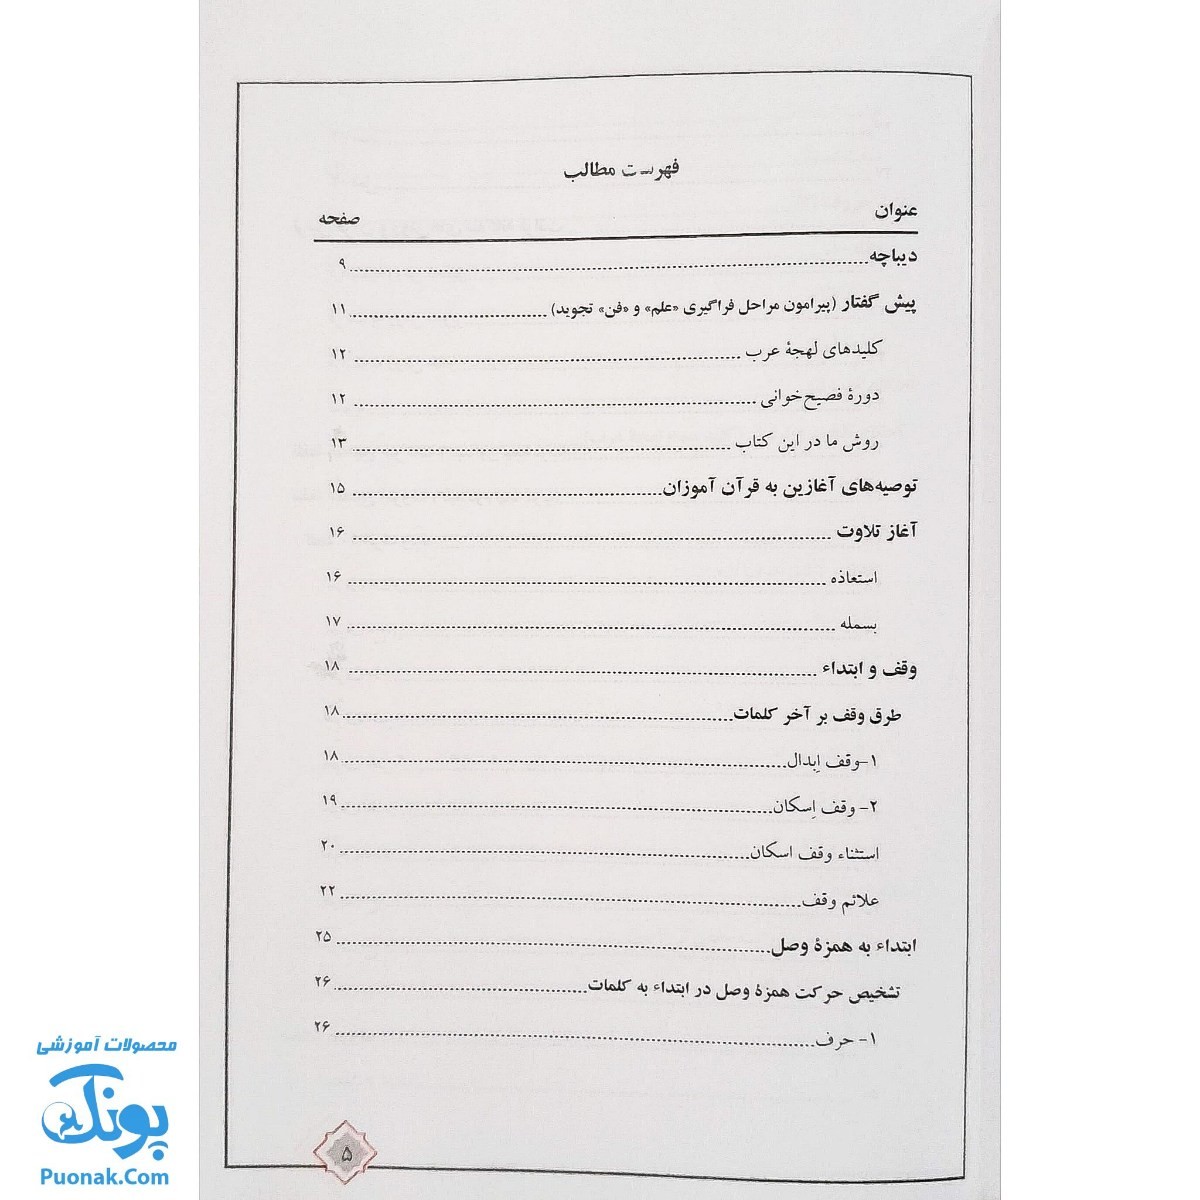 فهرست مطالب
عنوان صفحه
دیباچه ۹
پیش گفتار (پیرامون مراحل فراگیری «علم» و «فن» تجوید) ۱۱
کلیدهای لهجهٔ عرب ۱۲
دورهٔ فصیح‌خوانی ۱۲
روش ما در این کتاب ۱۳
توصیه‌های آغازین به قرآن آموزان ۱۵
آغاز تلاوت ۱۶
استعاذه ۱۶
بسمله ۱۷
وقف و ابتداء ۱۸
طرق وقف بر آخر کلمات ۱۸
۱-وقف اِبدال ۱۸
۲- وقف اِسکان ۱۹
استثناء وقف اسکان ۲۰
علائم وقف ۲۲
ابتداء به همزهٔ وصل ۲۵
تشخیص حرکت همزهٔ وصل در ابتداء به کلمات ۲۶
۱- حرف ۲۶
۵
محصولات آموزشی
پونک
Puonak.Com